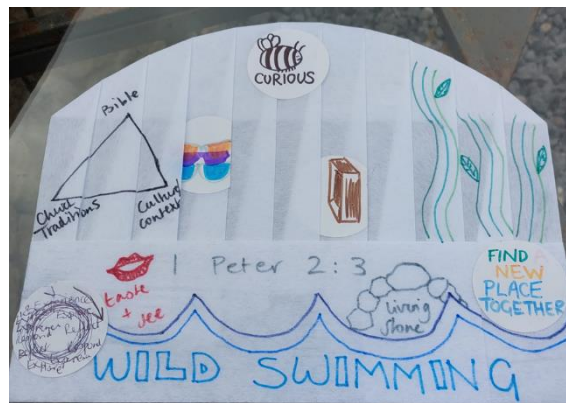 CURIOUS
Bible
Church
Traditions
Cultural
context
1 Peter 2:3
taste
+ see
living
stone
FIND A
NEW
PLACE
TOGETHER
WILD SWIMMING